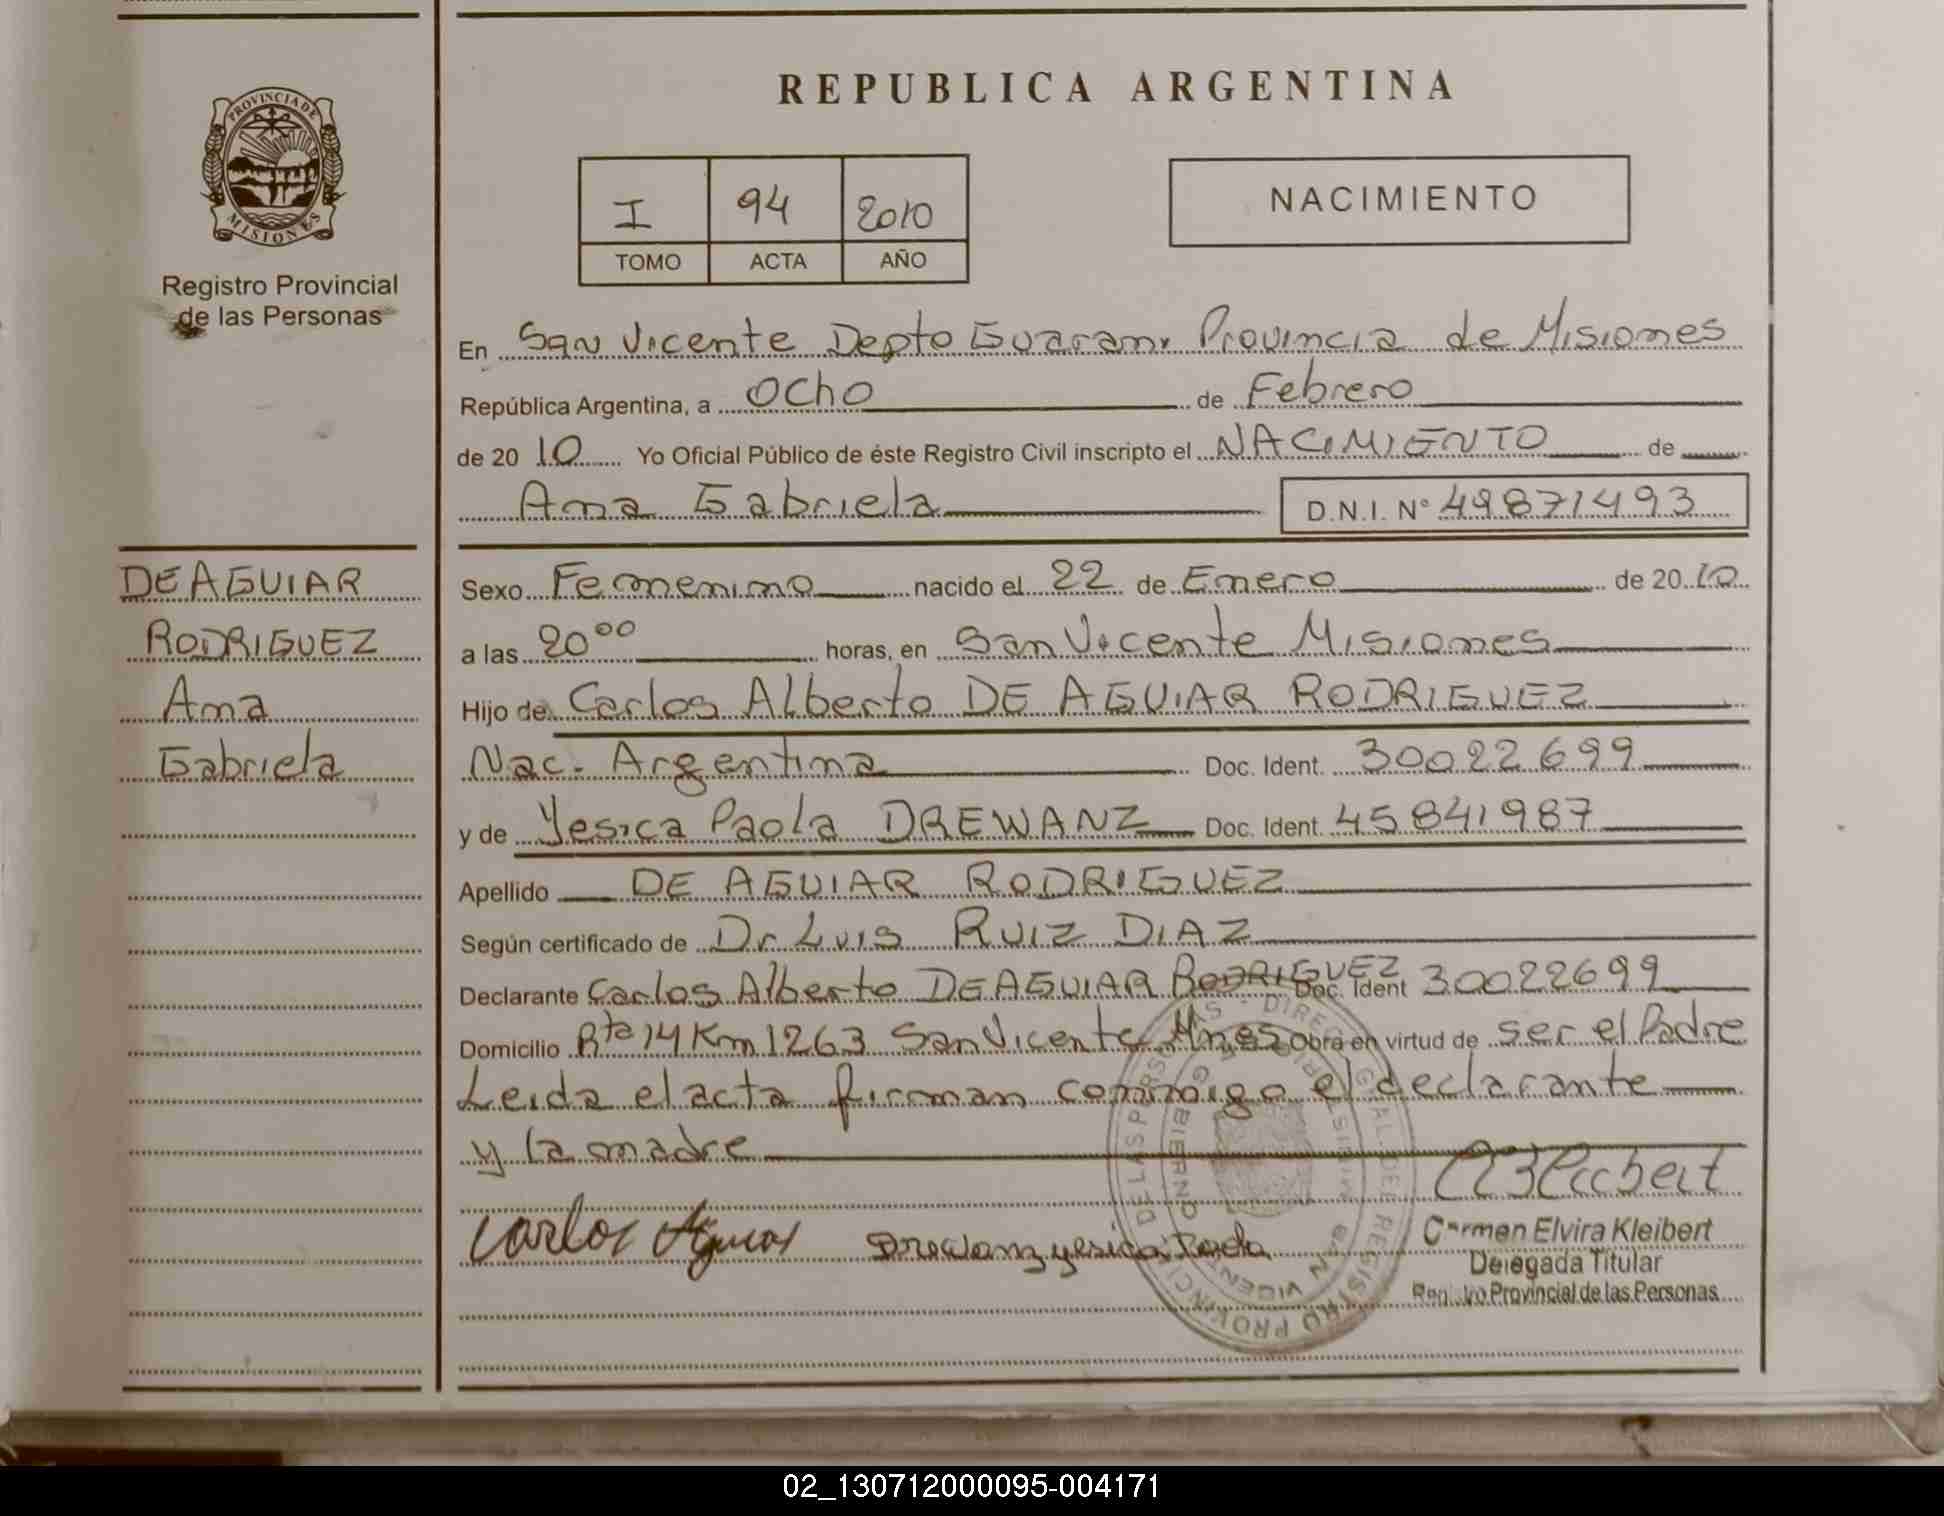 REPUBLICA ARGENTINA
PROVINCIA DE
MISIONES
Registro Provincial
de las Personas
I 94 2010
TOMO ACTA AÑO
NACIMIENTO
En San Vicente Depto Guarani Provincia de Misiones
República Argentina, a Ocho de Febrero
de 20 10 Yo Oficial Público de éste Registro Civil inscripto el NACIMIENTO de
Ana Gabriela D.N.I. N° 49871493
DE AGUIAR
RODRIGUEZ
Ana
Gabriela
Sexo Femenino nacido el 22 de Enero de 20 10
a las 20 00 horas, en San Vicente Misiones
Hijo de Carlos Alberto DE AGUIAR RODRIGUEZ
Nac. Argentina Doc. Ident. 30022699
y de Yesica Paola DREWANZ Doc. Ident. 45841987
Apellido DE AGUIAR RODRIGUEZ
Según certificado de Dr Luis RUIZ DIAZ
Declarante Carlos Alberto DE AGUIAR RODRIGUEZ Doc. Ident 30022699
Domicilio Rta 14 Km 1263 San Vicente Mnes Obra en virtud de ser el Padre
Leida el acta firman conmigo el declarante
y la madre
Carlos Aguiar Drewanz yesica Paola
Carmen Elvira Kleibert
Delegada Titular
Registro Provincial de las Personas
02_130712000095-004171